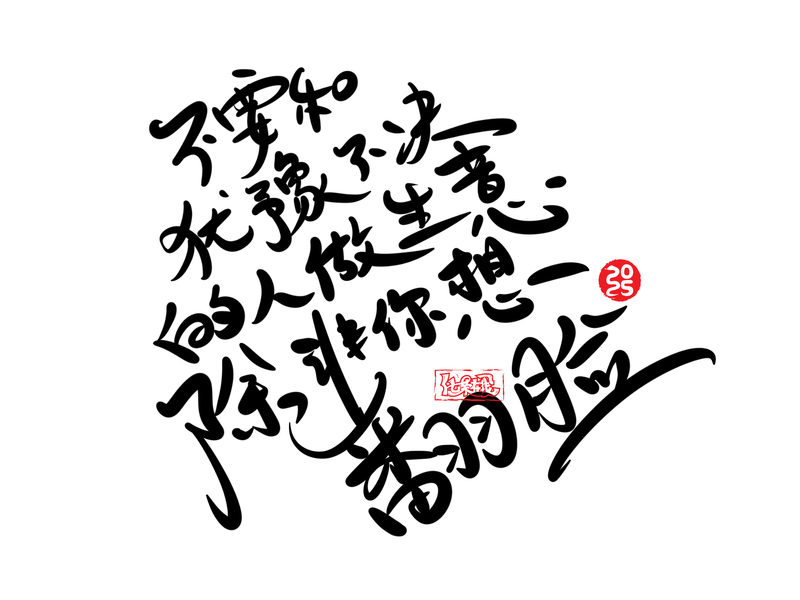 不要和
犹豫不决
的人做生意
除非你想
翻脸
2025